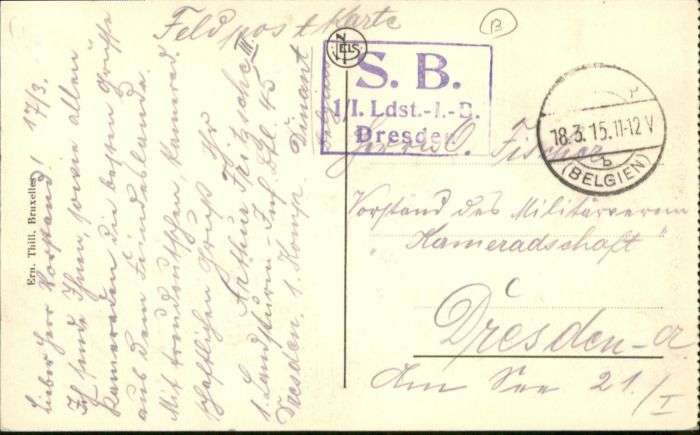 Feldpostkarte
Lieber Herr Vorstand! 17/3.
Ich sende Ihnen, sowie allen
Kameraden die besten Grüße
aus dem Feindeslande.
Mit treudeutschen, kamerad-
schaftlichen Gruß Ihr
Arthur Fritzsche III
1. Landsturm-Inf. Btl 45
Dresden, 1. Komp. Dinant
Belgien
Ern. Thill, Bruxelles
NELS
S. B.
1/I. Ldst.-I.-B.
Dresden
18.3.15.11-12 V
b
(BELGIEN)
B
Herrn C. Fischer
Vorstand des Militärverein
"Kameradschaft"
Dresden-A
Am See 21/I